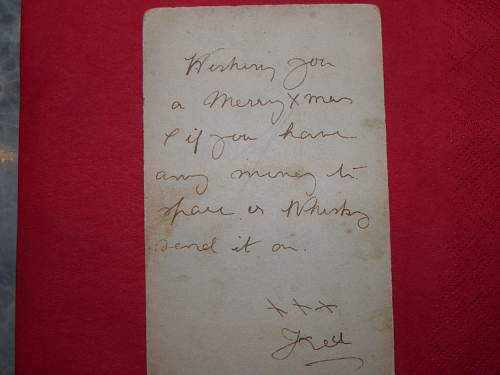 Wishing you
a Merry Xmas
& if you have
any money to
spare or Whisky
send it on.
x x x
Fred